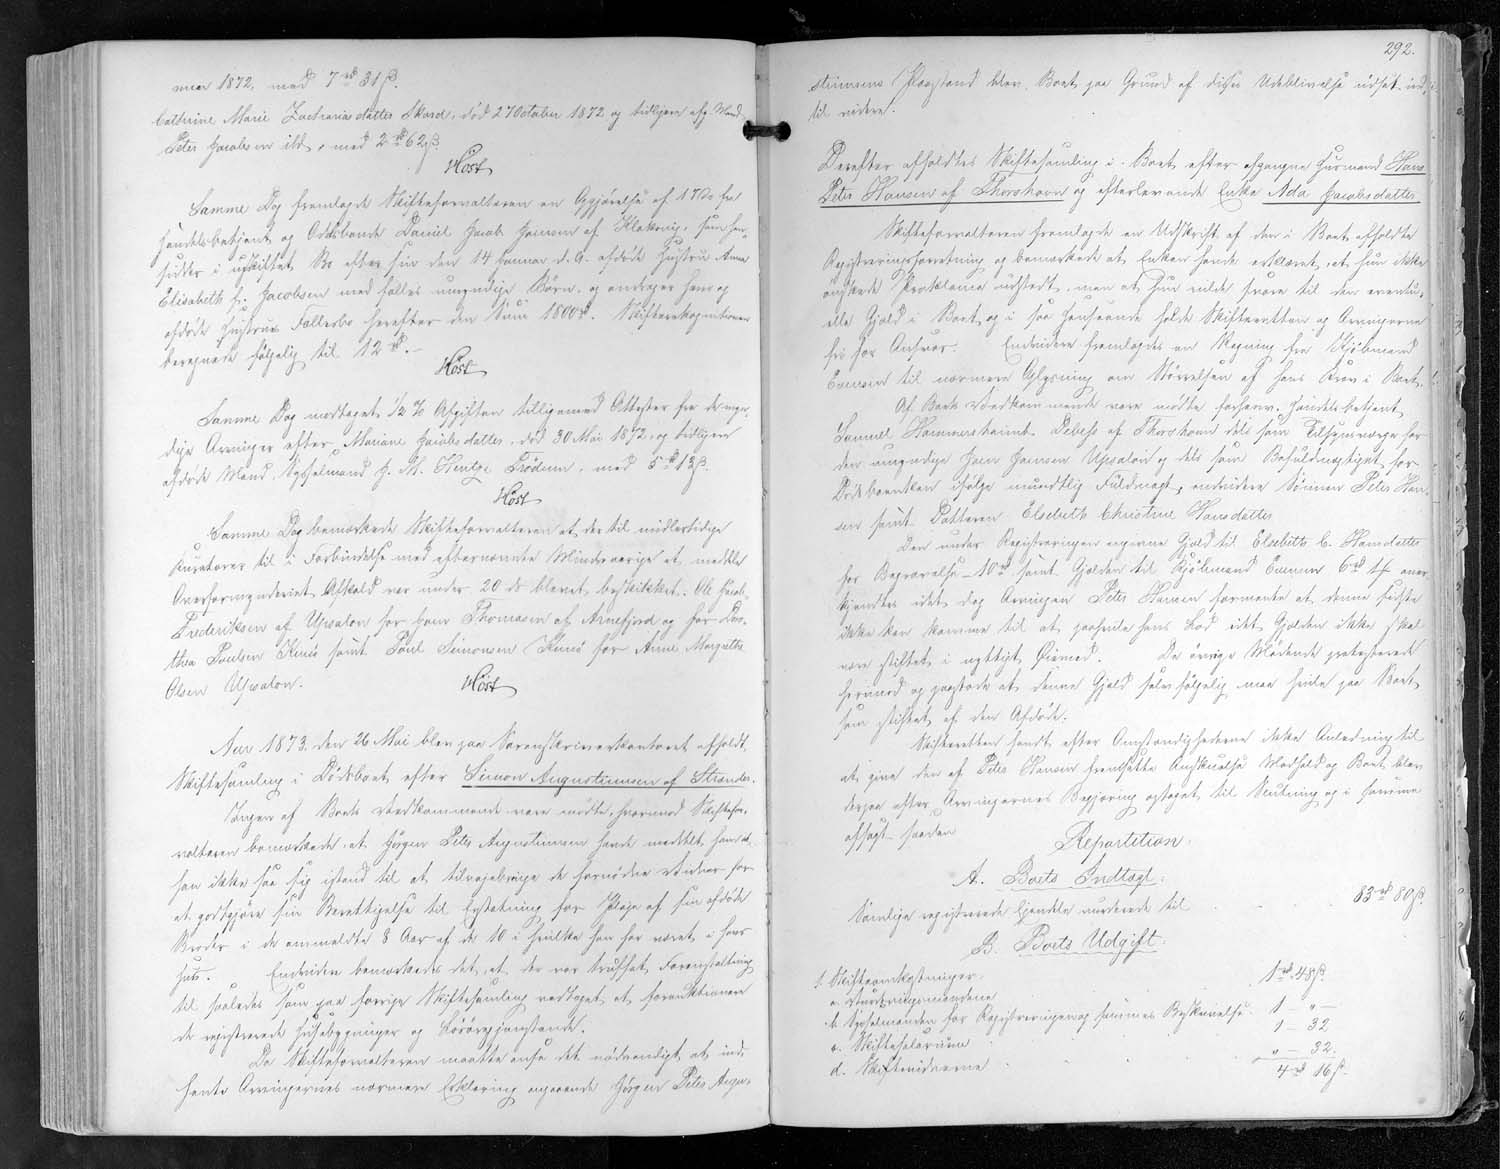 nuar 1872, med 7 rd 31 ß.
Cathrine Marie Zacharia datter Skaard, død 27 October 1872 og tidligere afg. Mand
Peter Jacobsen ibd, med 2 rd 62 ß.
Höst
Samme Dag fremlagde Skifteforvalteren en Opgjørelse af 17 ds. fra
Handelsbetjent og Odelsbonde Daniel Jacob Joensen af Klaksvig, som hen-
sidder i uskiftet Bo efter sin den 14 Januar d. A. afdøde Hustru Anna
Elisabeth f. Jacobsen med fælles umyndige Børn, og andrager hans og
afdøde Hustrues Fællesbo herefter den Sum 1800 rd. Skifterekognitionen
beregnede følgelig til 12 rd.
Höst
Samme Dag modtaget 1/2 % Afgiften tilligemed Attester fra de myn-
dige Arvinger efter Mariane Jacobsdatter, død 30 Mai 1872, og tidligere
afdøde Mand, Sysselmand J. M. Hentze Trödum, med 5 rd 13 ß.
Höst
Samme Dag bemærkede Skifteforvalteren at der til midlertidige
Kuratorer til i Forbindelse med efternævnte Mindreaarige at meddele
Overformynderiet Afkald var under 20 ds blevet beskikket: Ole Jacob
Frederiksen af Upsalon for Thomasen af Arnefjord og for Do-
thea Poulsen Kunö samt Poul Simonsen Kunö for Anne Margrethe
Olsen Upsalon.
Höst
Aar 1873, den 26 Mai blev paa Sorenskriverkontoret afholdt
Skiftesamling i Dödsboet efter Simon Augustinussen af Strænder.
Ingen af Boets Vedkommende vare mødte, hvorimod Skiftefor-
valteren bemærkede, at Jörgen Peter Augustinussen havde meddelt ham at
han ikke saa sig istand til at tilveiebringe de fornødne Vidner for
at godtgjøre sin Berettigelse til Erstatning for Pleie af sin afdøde
Broder i de anmeldte 8 Aar af de 10 i hvilke han har været i hans
Huus. Endvidere bemærkedes det, at der var truffet Foranstaltning
til saaledes som paa forrige Skiftesamling vedtaget at forauktionere
de registrerede Huusebygninger og Lösöregjenstande.
Da Skifteforvalteren maatte anse det nødvendigt at ind-
hente Arvingernes nærmere Erklæring angaaende Jörgen Peter Augu-
292.
stinussens Paastand blev Boet paa Grund af disses Udeblivelse udsat ind-
til videre.
Derefter afholdtes Skiftesamling i Boet efter afgangne Huusmand Hans
Peter Hansen af Thorshavn og efterlevende Enke Ada Jacobsdatter
Skifteforvalteren fremlagde en Udskrift af den i Boet afholdte
Registreringsforretning og bemærkede at Enken havde erklæret, at hun ikke
ønskede Proklama udstedt, men at hun vilde svare til den eventu-
elle Gjæld i Boet og i saa Henseende holde Skifteretten og Arvingerne
fri for Ansvar. Endvidere fremlagdes en Regning fra Kjöbmand
til nærmere Oplysning om Størrelsen af hans Krav i Boet.
Af Boets Vedkommende vare mødte forhenv. Handelsbetjent
Samuel Hammershaimb Debess af Thorshavn dels som Tilsynsværge for
den umyndige Joen Joensen Upsalon og dels som Befuldmægtiget for
Dödsboenken ifølge mundtlig Fuldmagt, endvidere Sønnen Peter Han-
sen samt Datteren Elsebeth Christine Hansdatter
Den under Registreringen angivne Gjæld til Elsebeth C. Hansdatter
for Begravelse 10 rd samt Gjælden til Kjöbmand 6 rd 14 aner-
kjendtes idet dog Arvingen Peter Hansen formente at denne sidste
ikke kan komme til at paahvile hans Lod idet Gjælden ikke skal
være stiftet i nyttigt Øiemed. De øvrige Mødende protesterede
herimod og paastode at denne Gjæld selvfølgelig maa hvile paa Boet
som stiftet af den Afdøde.
Skifteretten fandt efter Omstændighederne ikke Anledning til
at give den af Peter Hansen fremsatte Anskuelse Medhold og Boet blev
derpaa efter Arvingernes Begjæring optaget til Slutning og i samme
afsagt saadan
Repartition.
A. Boets Indtægt.
Samtlige registrerede Eiendele vurderede til 83 rd 80 ß.
B. Boets Udgift.
1. Skifteomkostninger.
a. Vurderingsmændene 1 rd 48 ß
b. Sysselmanden for Registreringen og sammes Beskrivelse 1 – „ –
c. Skiftesalarium 1 – 32
d. Skiftevidnerne „ – 32.
4 rd 16 ß.